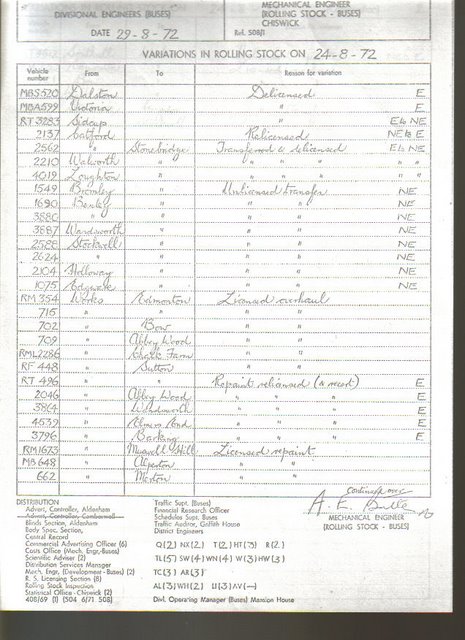 DIVISIONAL ENGINEERS (BUSES)
MECHANICAL ENGINEER
(ROLLING STOCK - BUSES)
CHISWICK
DATE 29-8-72
Ref. 508/1
VARIATIONS IN ROLLING STOCK ON 24-8-72
Vehicle number From To Reason for variation
MBS520 Dalston Delicensed E
MBA599 Victoria " E
RT 3283 Sidcup " E to NE
2137 Catford Relicensed NE to E
2562 " Stonebridge Transferred & relicensed E to NE
2210 Walworth " " " " " "
4019 Loughton " " " " " "
1549 Bromley Unlicensed transfer NE
1690 Bexley " " NE
3880 " " " NE
3887 Wandsworth " " " NE
2588 Stockwell " " " NE
2624 " " " " NE
2104 Holloway " " " NE
1075 Edgware " " " NE
RM 354 Works Edmonton Licensed overhaul
715 " " " "
702 " Bow " "
709 " Abbey Wood " "
RML2286 " Chalk Farm " "
RF 448 " Sutton " "
RT 496 " " Repaint relicensed E
2046 " Abbey Wood " " " E
3864 " Wandsworth " " " E
4539 " " " " E
3796 " Barking " " " E
RM1673 " Muswell Hill Licensed repaint
MB 648 " Alperton " "
662 " Merton " "
continued over
MECHANICAL ENGINEER
(ROLLING STOCK - BUSES)
DISTRIBUTION
Advert. Controller, Aldenham
Advert. Controller, Camberwell
Blinds Section, Aldenham
Body Spec. Section,
Central Record
Commercial Advertising Officer (6)
Costs Office (Mech. Engr. Buses)
Scientific Adviser (2)
Distribution Services Manager
Mech. Engr. (Development-Buses) (2)
R. S. Licensing Section (8)
Rolling Stock Inspection
Statistical Office - Chiswick (2)
408/69 (1) (504 6/71 508)
Traffic Supt. (Buses)
Financial Research Officer
Schedules Supt. Buses
Traffic Auditor, Griffith House
District Engineers
Q(2) NX(2) T(2) HT(3) R(2)
TL(5) SW(4) WN(4) W(3) HW(3)
TC(3) AR(3)
AL(3) WH(2) U(3) AV(—)
Divl. Operating Manager (Buses) Mansion House